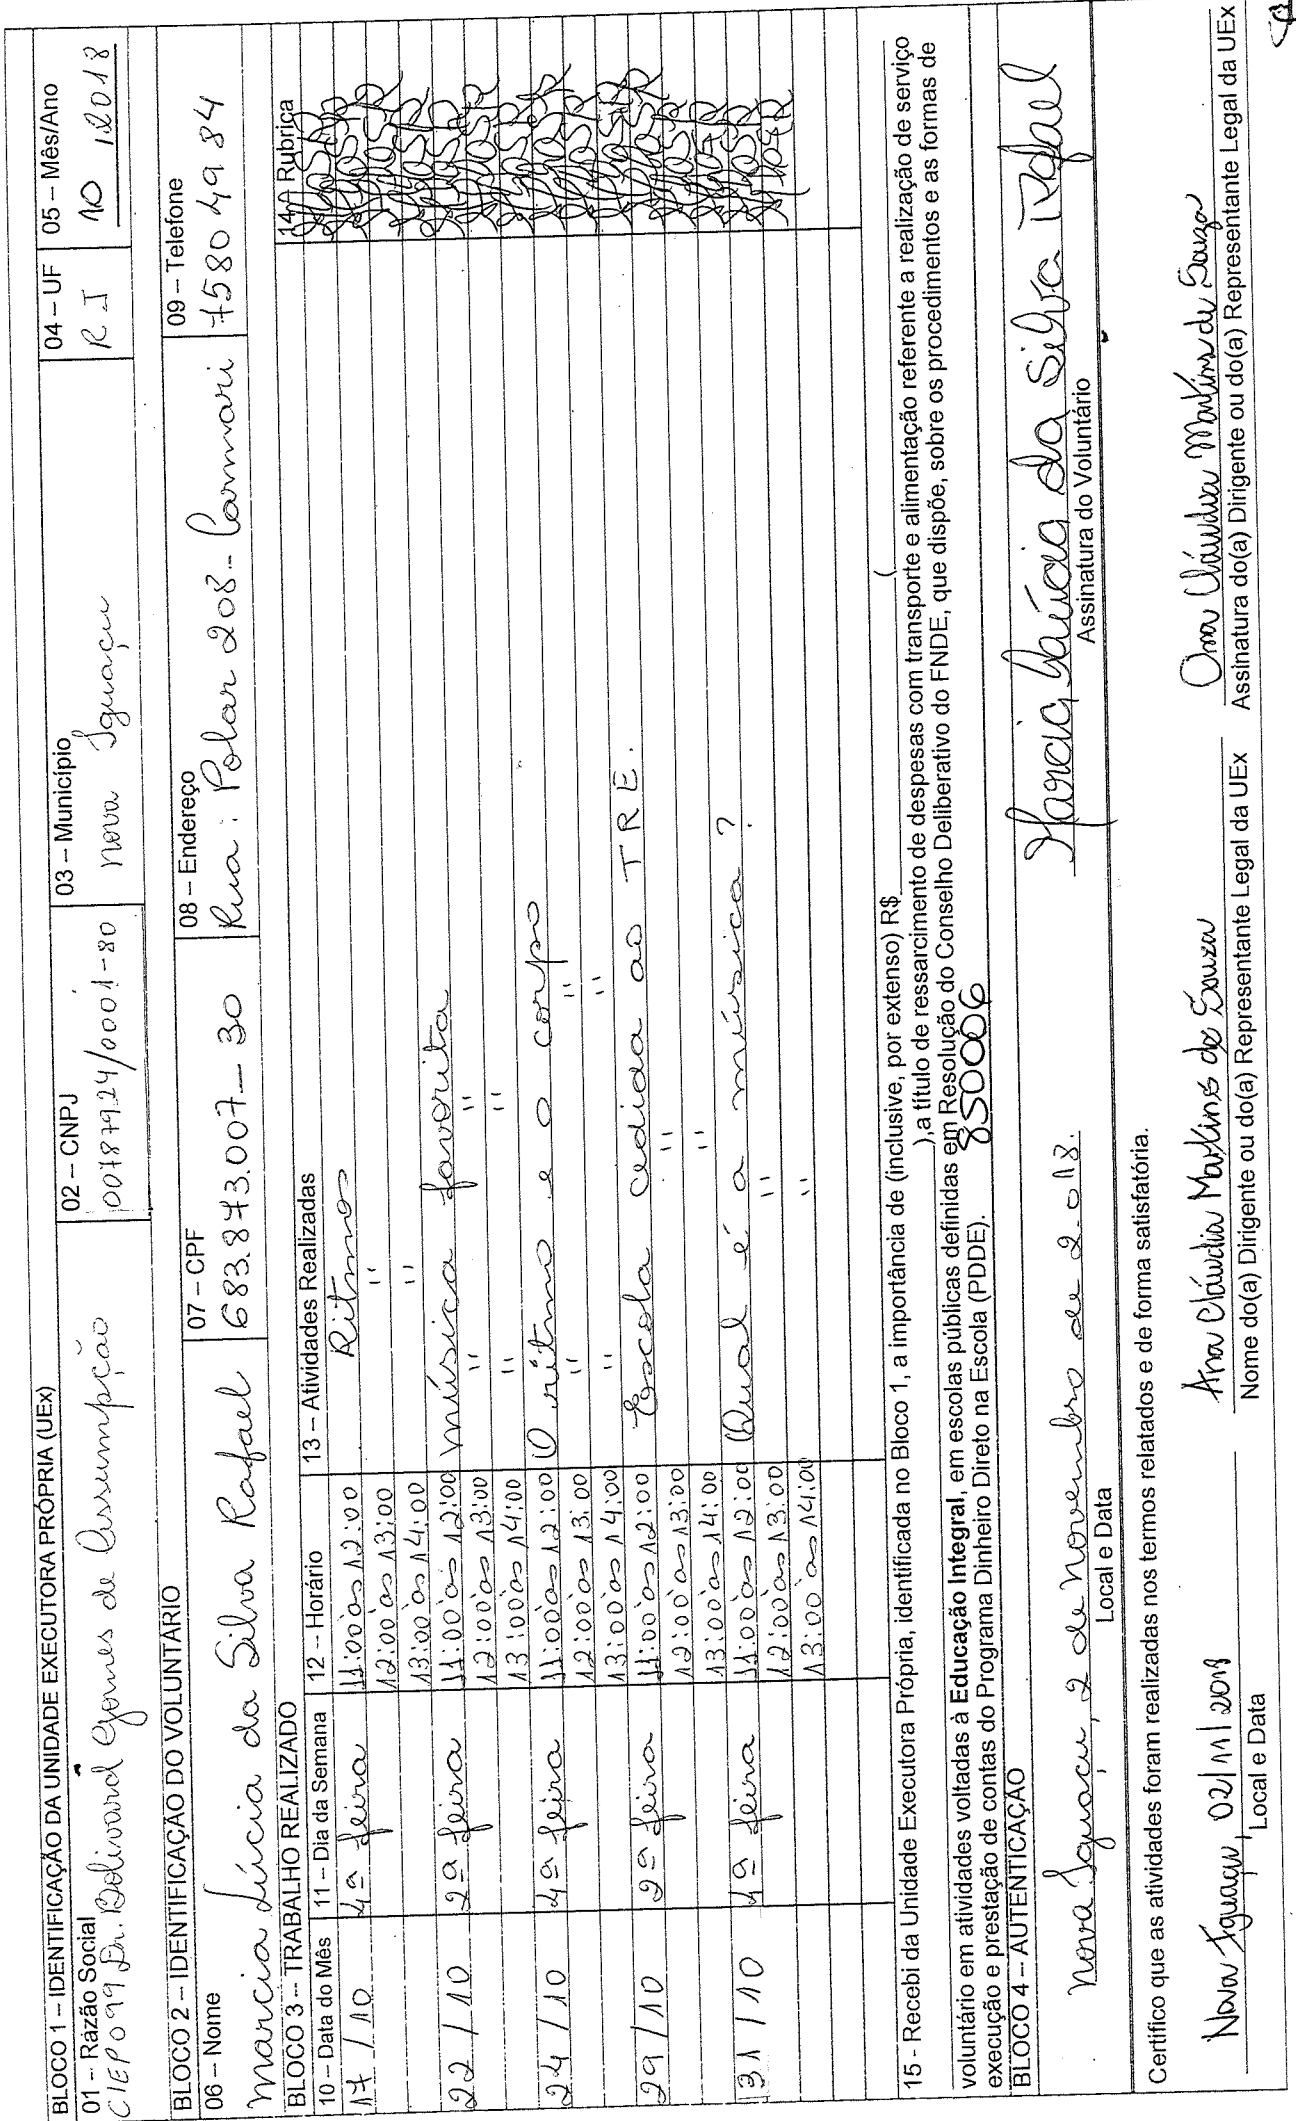 BLOCO 1 – IDENTIFICAÇÃO DA UNIDADE EXECUTORA PRÓPRIA (UEx)
01 – Razão Social
CIEP 099 Dr. Bolivard Gomes de Assumpção
02 – CNPJ
00787924/0001-80
03 – Município
Nova Iguaçu
04 – UF
RJ
05 – Mês/Ano
10 / 2018
BLOCO 2 – IDENTIFICAÇÃO DO VOLUNTÁRIO
06 – Nome
Marcia Lúcia da Silva Rafael
07 – CPF
683.873.007-30
08 – Endereço
Rua: Polar 208- Carmari
09 – Telefone
75804984
BLOCO 3 – TRABALHO REALIZADO
10 – Data do Mês 11 – Dia da Semana 12 – Horário 13 – Atividades Realizadas 14 – Rubrica
17/10 4ª feira 11:00 às 12:00 Ritmos
12:00 às 13:00 "
13:00 às 14:00 "
22/10 2ª feira 11:00 às 12:00 Música favorita
12:00 às 13:00 " "
13:00 às 14:00 " "
24/10 4ª feira 11:00 às 12:00 O ritmo e o corpo
12:00 às 13:00 " "
13:00 às 14:00 " "
29/10 2ª feira 11:00 às 12:00 Escola cedida ao TRE.
12:00 às 13:00 "
13:00 às 14:00 "
31/10 4ª feira 11:00 às 12:00 Qual é a música?
12:00 às 13:00 "
13:00 às 14:00 "
15 - Recebi da Unidade Executora Própria, identificada no Bloco 1, a importância de (inclusive, por extenso) R$ (
),a título de ressarcimento de despesas com transporte e alimentação referente a realização de serviço
voluntário em atividades voltadas à Educação Integral, em escolas públicas definidas em Resolução do Conselho Deliberativo do FNDE, que dispõe, sobre os procedimentos e as formas de
execução e prestação de contas do Programa Dinheiro Direto na Escola (PDDE). 850006
BLOCO 4 – AUTENTICAÇÃO
Nova Iguaçu, 2 de Novembro de 2.018. Marcia Lúcia da Silva Rafael
Local e Data Assinatura do Voluntário
Certifico que as atividades foram realizadas nos termos relatados e de forma satisfatória.
Nova Iguaçu, 02/11/2018 Ana Cláudia Martins de Souza Ana Cláudia Martins de Souza
Local e Data Nome do(a) Dirigente ou do(a) Representante Legal da UEx Assinatura do(a) Dirigente ou do(a) Representante Legal da UEx